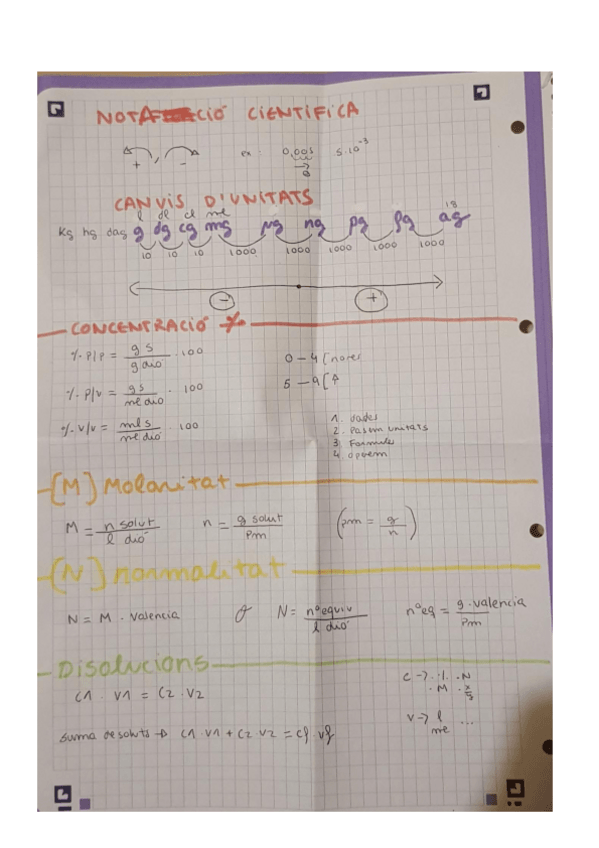 NOTACIÓ CIENTIFICA
+ , - ex: 0,005 5·10⁻³
CANVIS D'UNITATS
l dl cl ml 18
Kg hg dag g dg cg mg µg ng pg fg ag
10 10 10 1000 1000 1000 1000 1000
- +
CONCENTRACIÓ %
%. P/P = g s / g dió · 100
0 - 4 [ no res
%. P/V = g s / ml dió · 100
5 - 9 [ ↑
%. V/V = ml s / ml dió · 100
1. dades
2. Passem unitats
3. Formules
4. operem
[M] Molaritat
M = n solut / l dió n = g solut / Pm (pm = g / n)
[N] normalitat
N = M · Valencia o N = nº equiv / l dió nº eq = g · valencia / Pm
Disolucions
C1 · V1 = C2 · V2
C → · % · N
· M
V → l ...
ml
suma de soluts → C1 · V1 + C2 · V2 = Cf · Vf